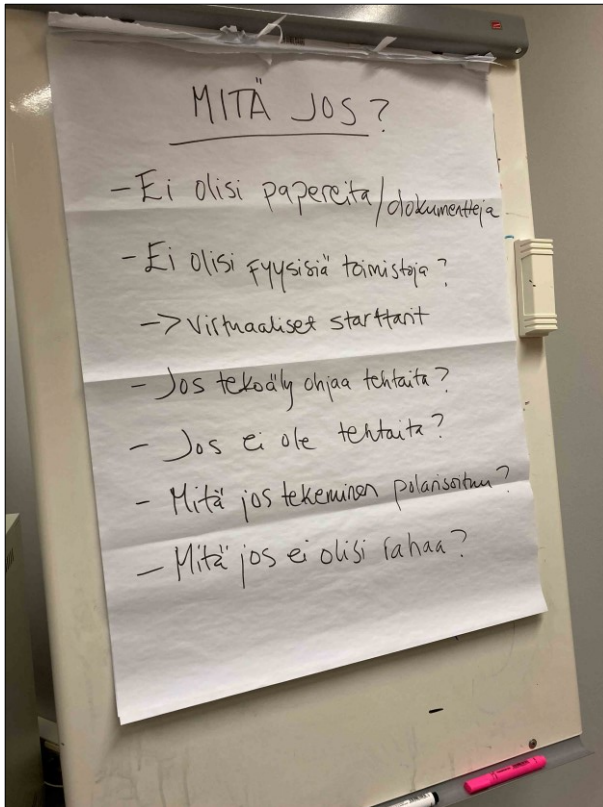 MITÄ JOS?
- Ei olisi papereita/dokumentteja
- Ei olisi fyysisiä toimistoja?
-> Virtuaaliset starttarit
- Jos tekoäly ohjaa tehtaita?
- Jos ei ole tehtaita?
- Mitä jos tekeminen polarisoituu?
- Mitä jos ei olisi rahaa?